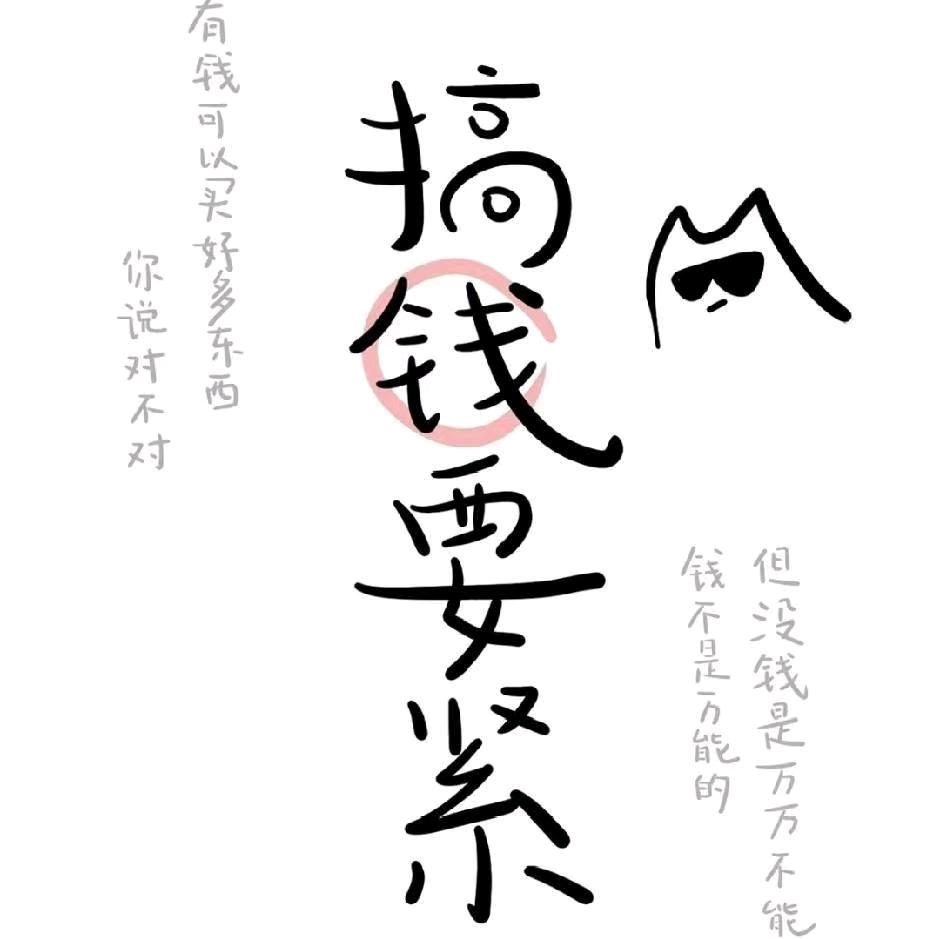 搞钱要紧
有钱可以买好多东西
你说对不对
钱不是万能的
但没钱是万万不能